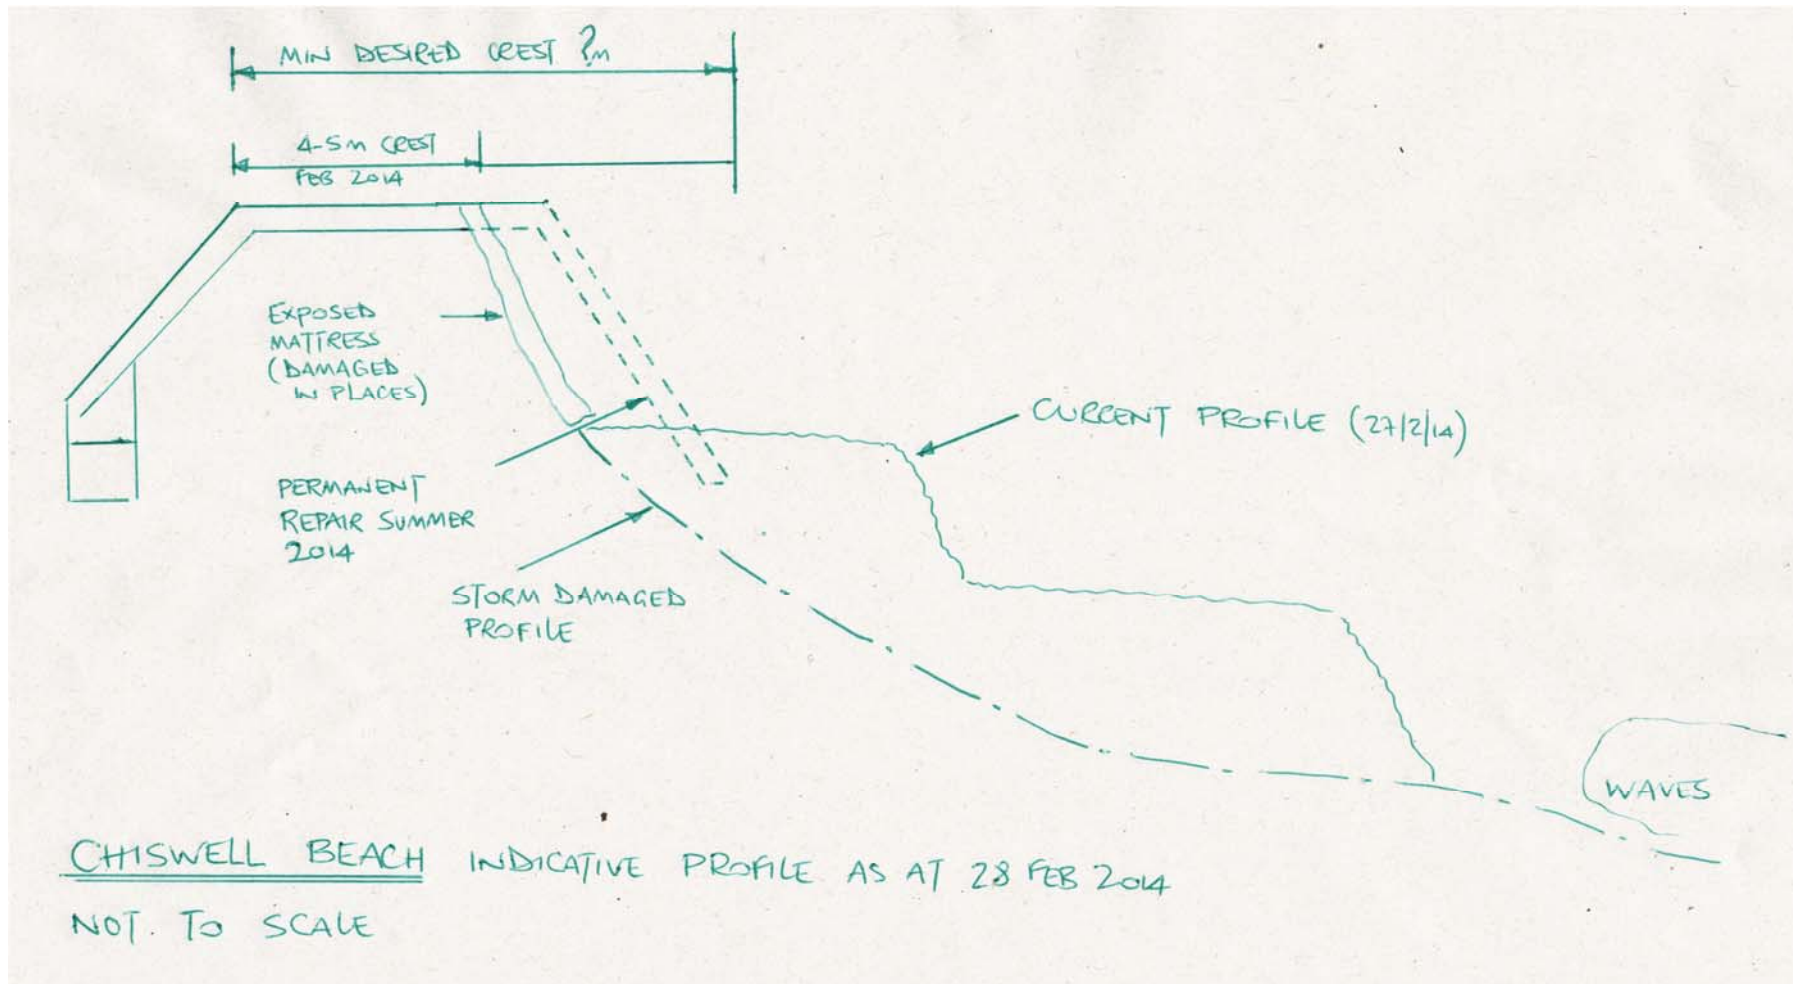 MIN DESIRED CREST ?m
4-5m CREST
FEB 2014
EXPOSED
MATTRESS
(DAMAGED
IN PLACES)
CURRENT PROFILE (27/2/14)
PERMANENT
REPAIR SUMMER
2014
STORM DAMAGED
PROFILE
WAVES
CHISWELL BEACH INDICATIVE PROFILE AS AT 28 FEB 2014
NOT. TO SCALE